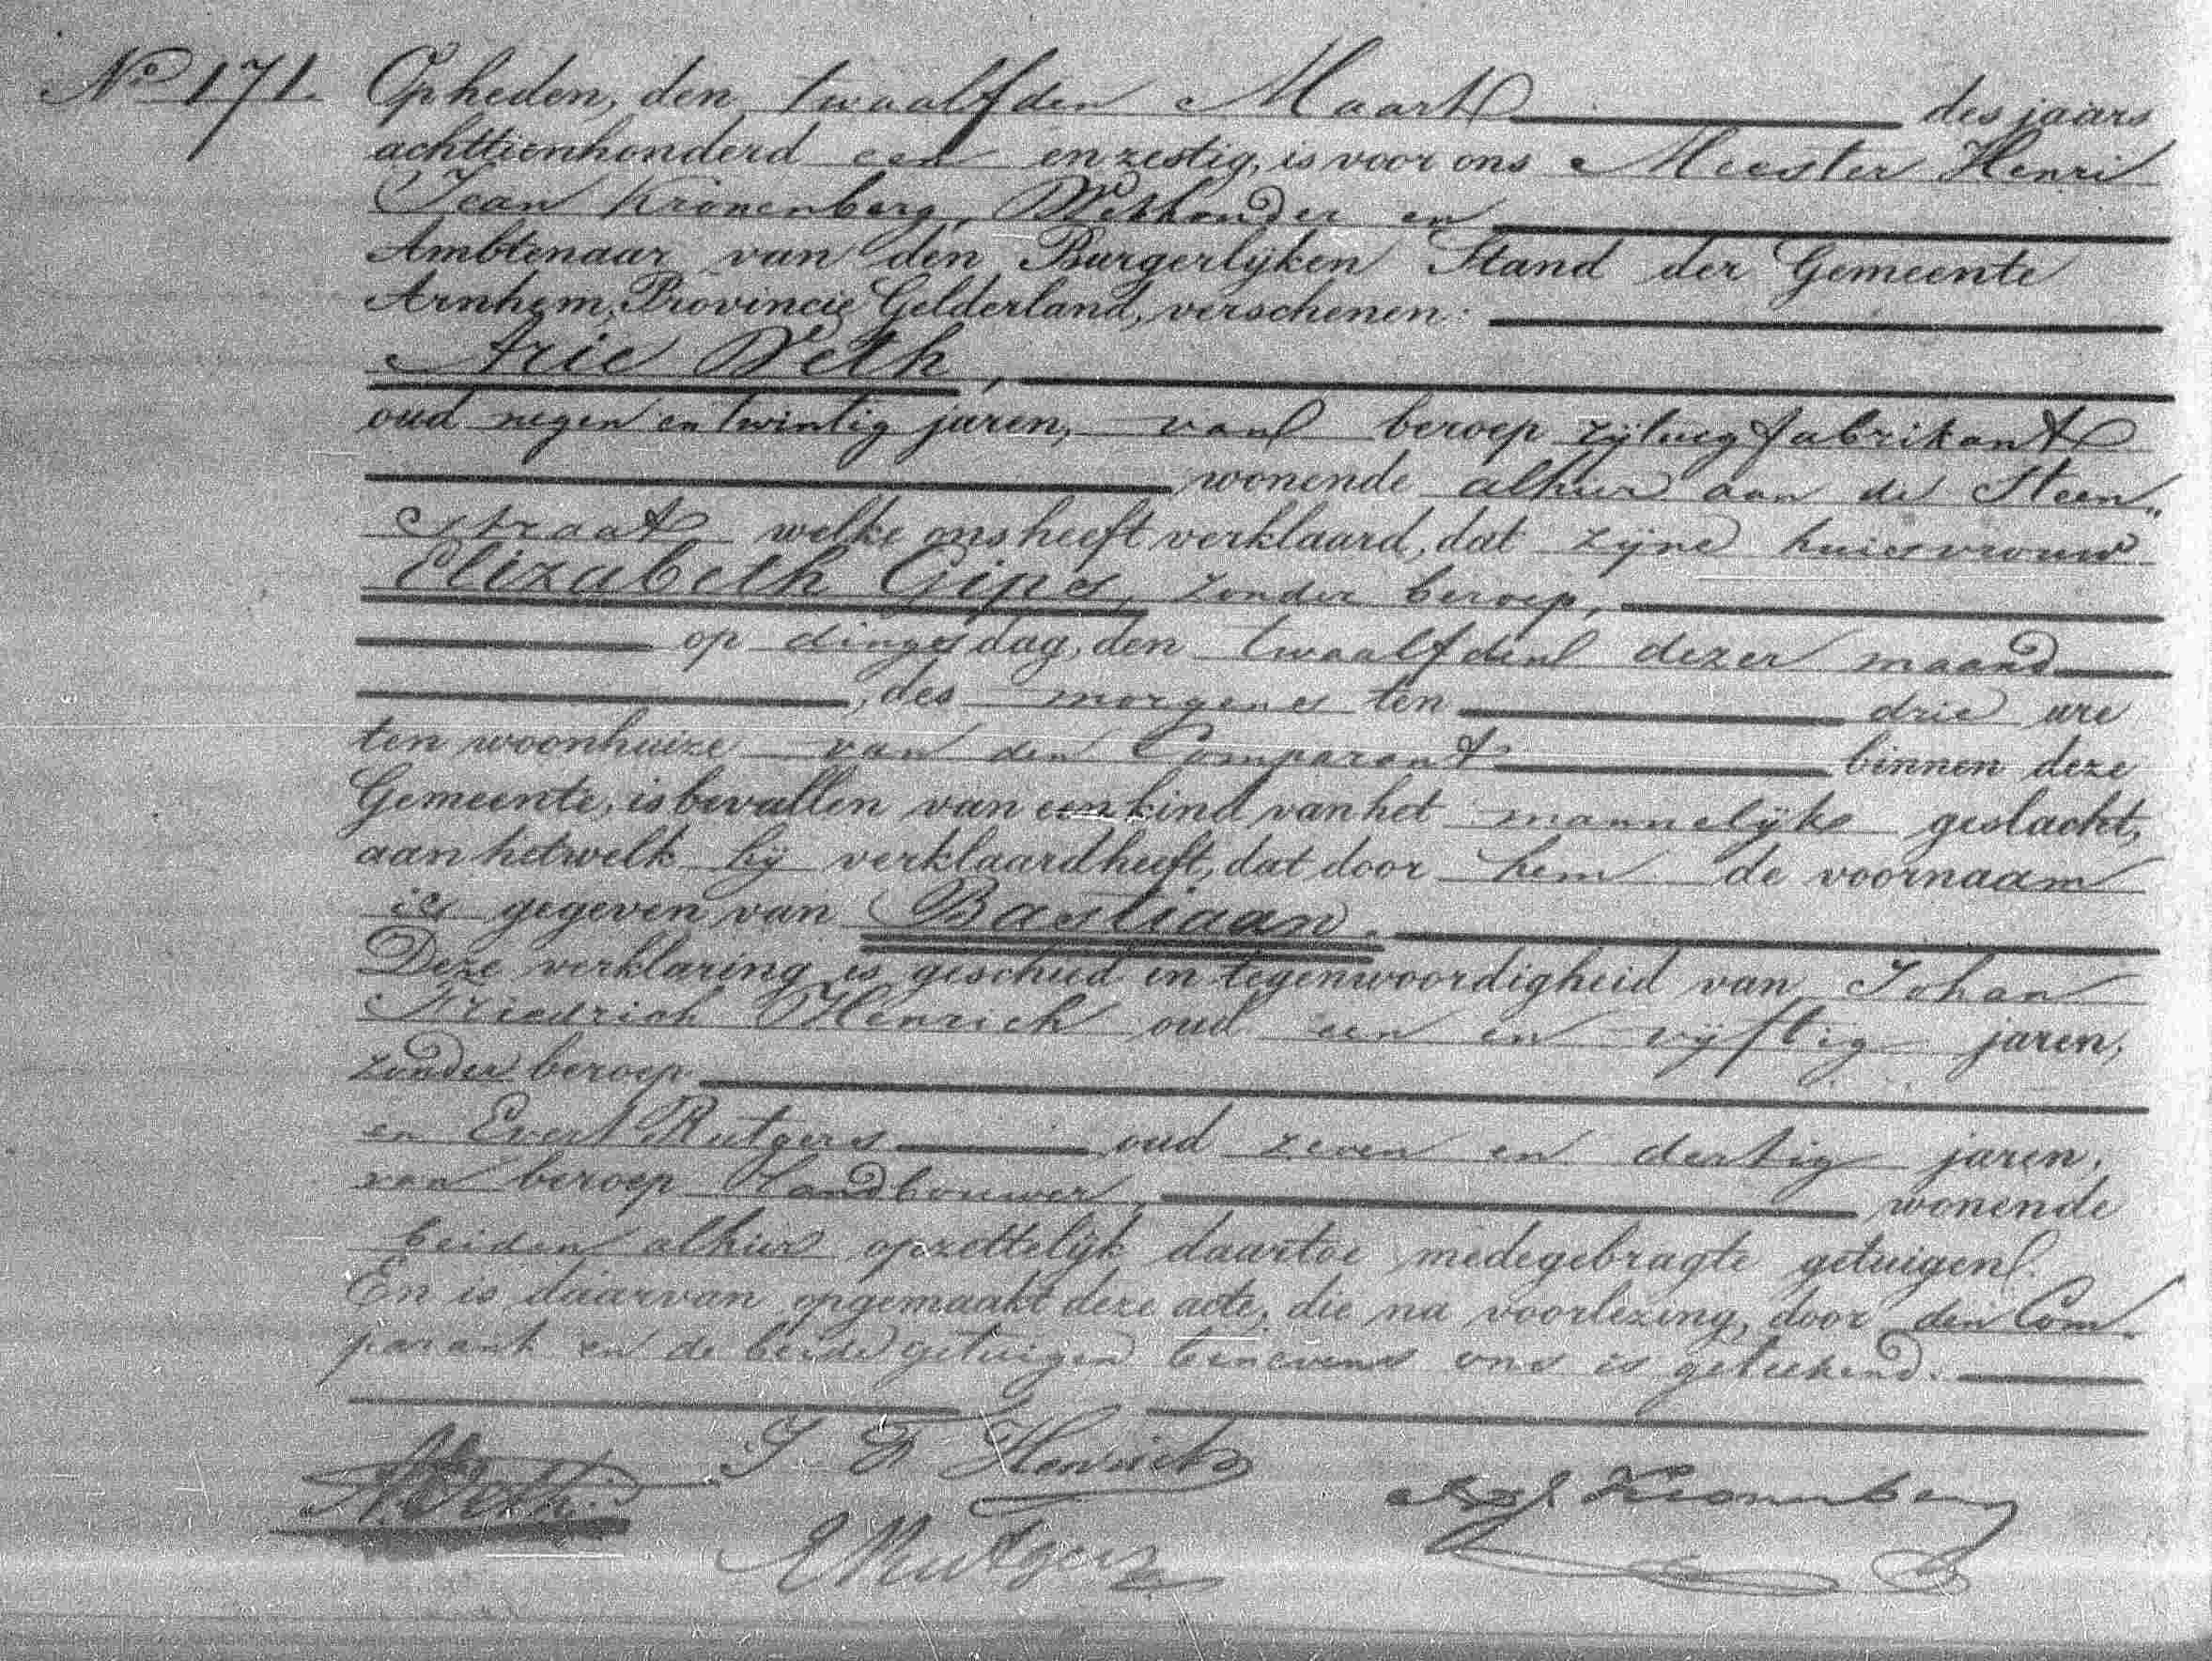 No 171. Opheden, den twaalfden Maart des jaars
achttienhonderd een en zestig, is voor ons Meester Henri
Jean Kronenberg, Wethouder en
Ambtenaar van den Burgerlijken Stand der Gemeente
Arnhem, Provincie Gelderland, verschenen:
Arie Veth,
oud negen en twintig jaren, van beroep rijtuigfabrikant
wonende alhier aan de Steen„
straat welke ons heeft verklaard, dat zijne huisvrouw
Elizabeth Gips, zonder beroep,
op dingsdag, den twaalfden dezer maand
, des morgens ten drie ure
ten woonhuize van den Comparant binnen deze
Gemeente, is bevallen van een kind van het mannelijk geslacht,
aan hetwelk hij verklaard heeft, dat door hem de voornaam
is gegeven van Bastiaan.
Deze verklaring is geschied in tegenwoordigheid van Johan
Friedrich Henrich oud een en vijftig jaren,
zonder beroep
en Evert Rutgers oud zeven en dertig jaren,
van beroep Landbouwer, wonende
beiden alhier opzettelijk daartoe medegebragte getuigen.
En is daarvan opgemaakt deze acte, die na voorlezing, door den Com„
parant en de beide getuigen benevens ons is geteekend.
A. Veth. J F Henrich
E Rutgers Kronenberg